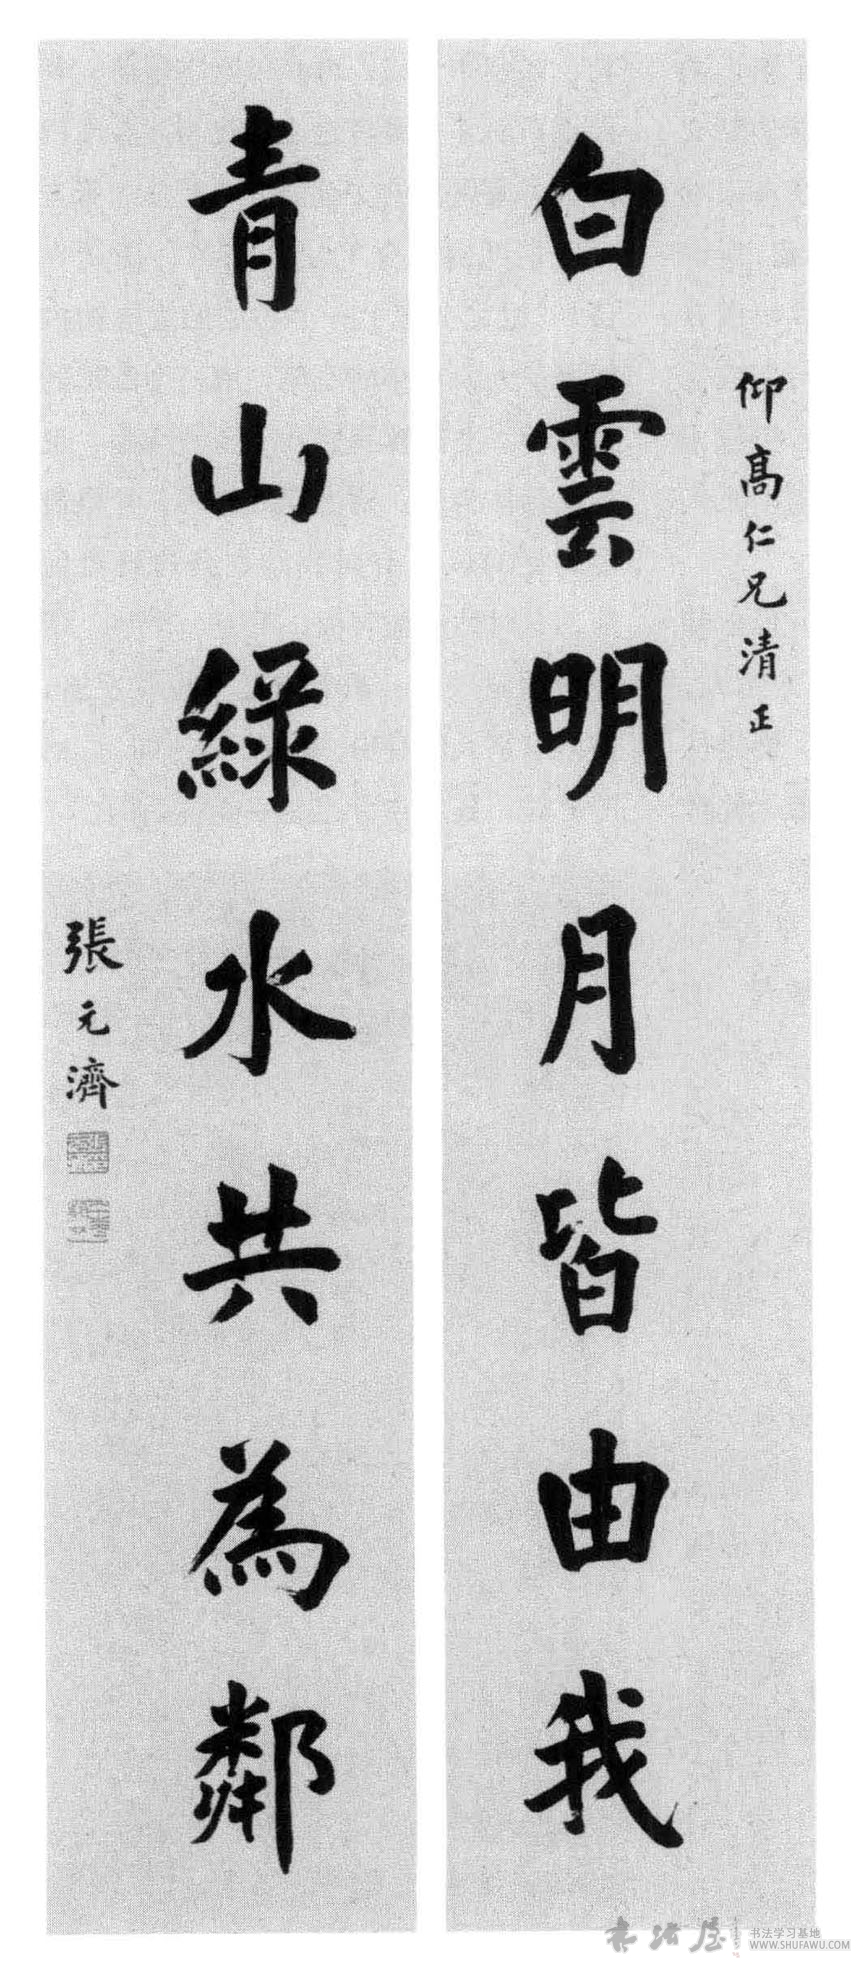 仰高仁兄清正
白雲明月皆由我
青山綠水共為鄰
張元濟
书法屋
书法学习基地
WWW.SHUFAWU.COM